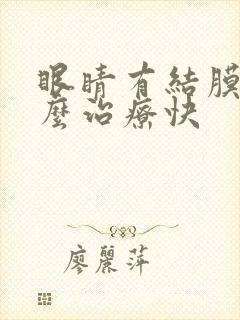 眼睛有結膜
麼治療快
廖麗萍